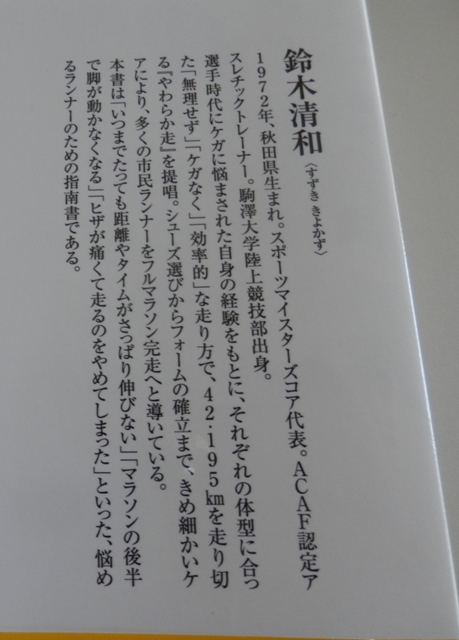 鈴木清和〈すずき きよかず〉
1972年、秋田県生まれ。スポーツマイスターズコア代表。ACAF認定ア
スレチックトレーナー。駒澤大学陸上競技部出身。
選手時代にケガに悩まされた自身の経験をもとに、それぞれの体型に合っ
た「無理せず」「ケガなく」「効率的」な走り方で、42・195㎞を走り切
る『やわらか走』を提唱。シューズ選びからフォームの確立まで、きめ細かいケ
アにより、多くの市民ランナーをフルマラソン完走へと導いている。
本書は「いつまでたっても距離やタイムがさっぱり伸びない」「マラソンの後半
で脚が動かなくなる」「ヒザが痛くて走るのをやめてしまった」といった、悩め
るランナーのための指南書である。